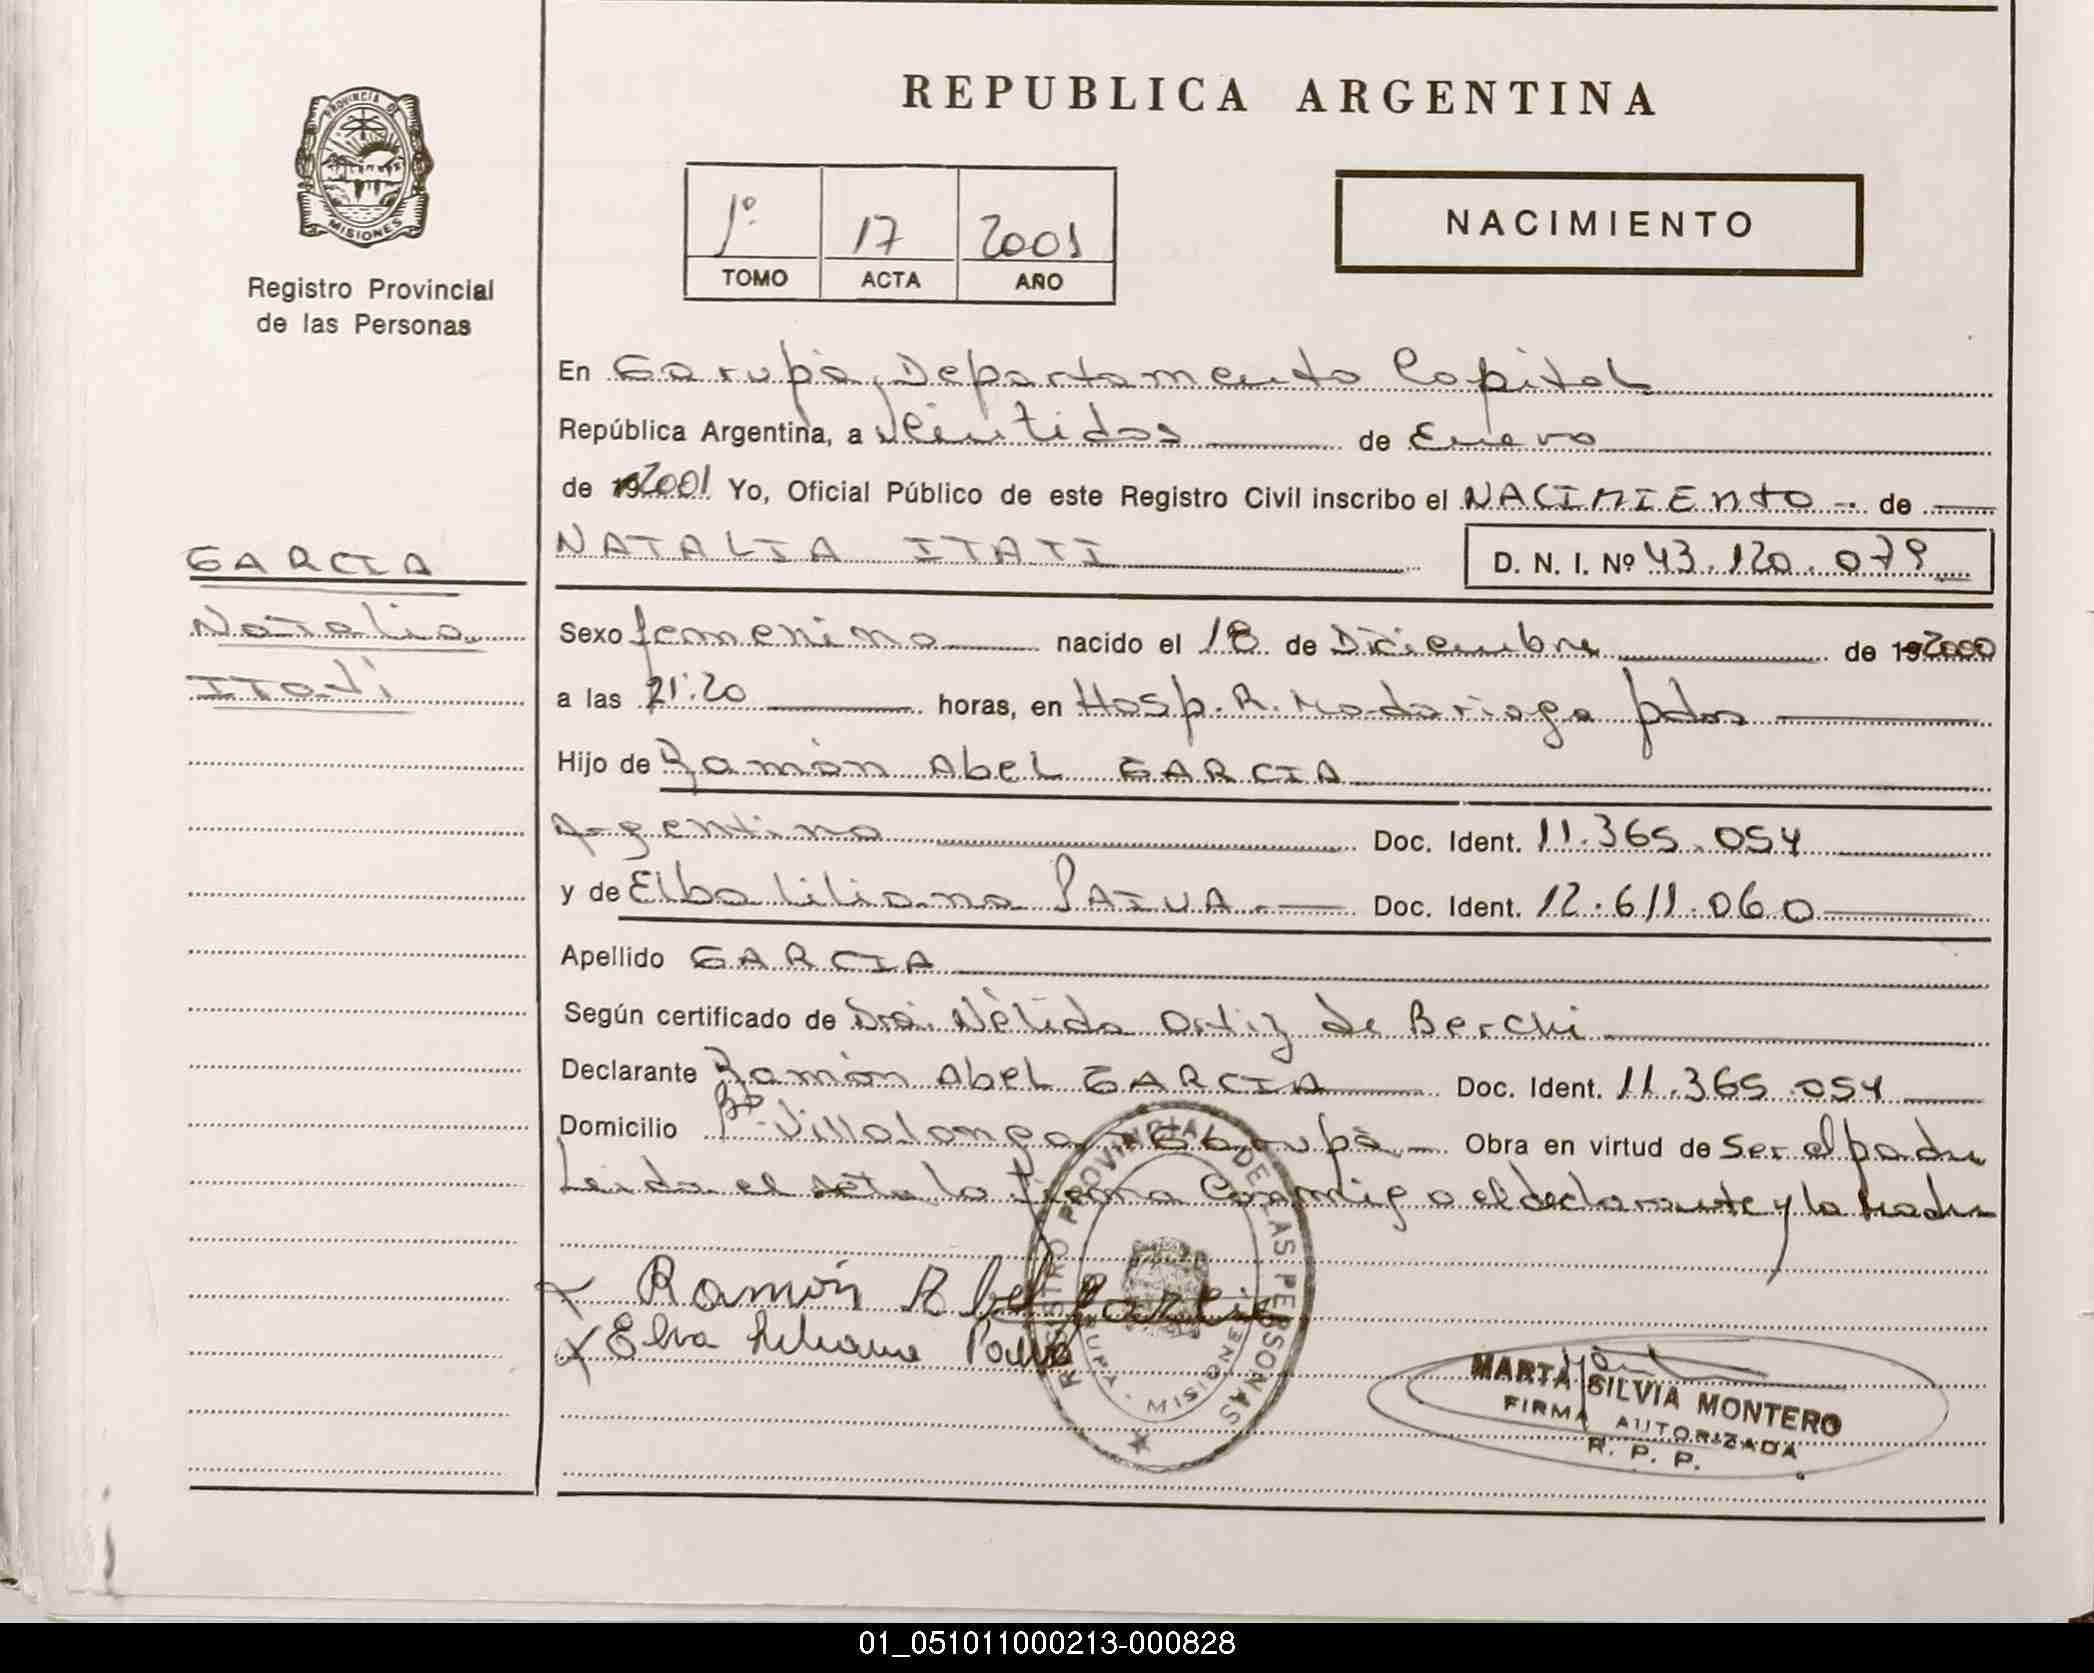 REPUBLICA ARGENTINA
PROVINCIA DE
MISIONES
Registro Provincial
de las Personas
1º 17 2001
TOMO ACTA AÑO
NACIMIENTO
En Garupá, Departamento Capital
República Argentina, a veintidos de Enero
de 192001 Yo, Oficial Público de este Registro Civil inscribo el NACIMIENTO de
GARCIA
Natalia
Itatí
NATALIA ITATI D. N. I. Nº 43.120.079
Sexo femenino nacido el 18 de Diciembre de 192000
a las 21:20 horas, en Hosp. R. Madariaga pdas
Hijo de Ramón Abel GARCIA
Argentino Doc. Ident. 11.365.054
y de Elba Liliana PAIVA Doc. Ident. 12.611.060
Apellido GARCIA
Según certificado de Dra. Nélida Ortiz de Berchi
Declarante Ramón Abel GARCIA Doc. Ident. 11.365.054
Domicilio Bº Villalonga Garupá Obra en virtud de ser el padre
Leida el acta la firma conmigo el declarante y la madre
Ramón Abel Garcia
Elva Liliana Paiva
REGISTRO PROVINCIAL DE LAS PERSONAS
MISIONES
MARTA SILVIA MONTERO
FIRMA AUTORIZADA
R. P. P.
01_051011000213-000828